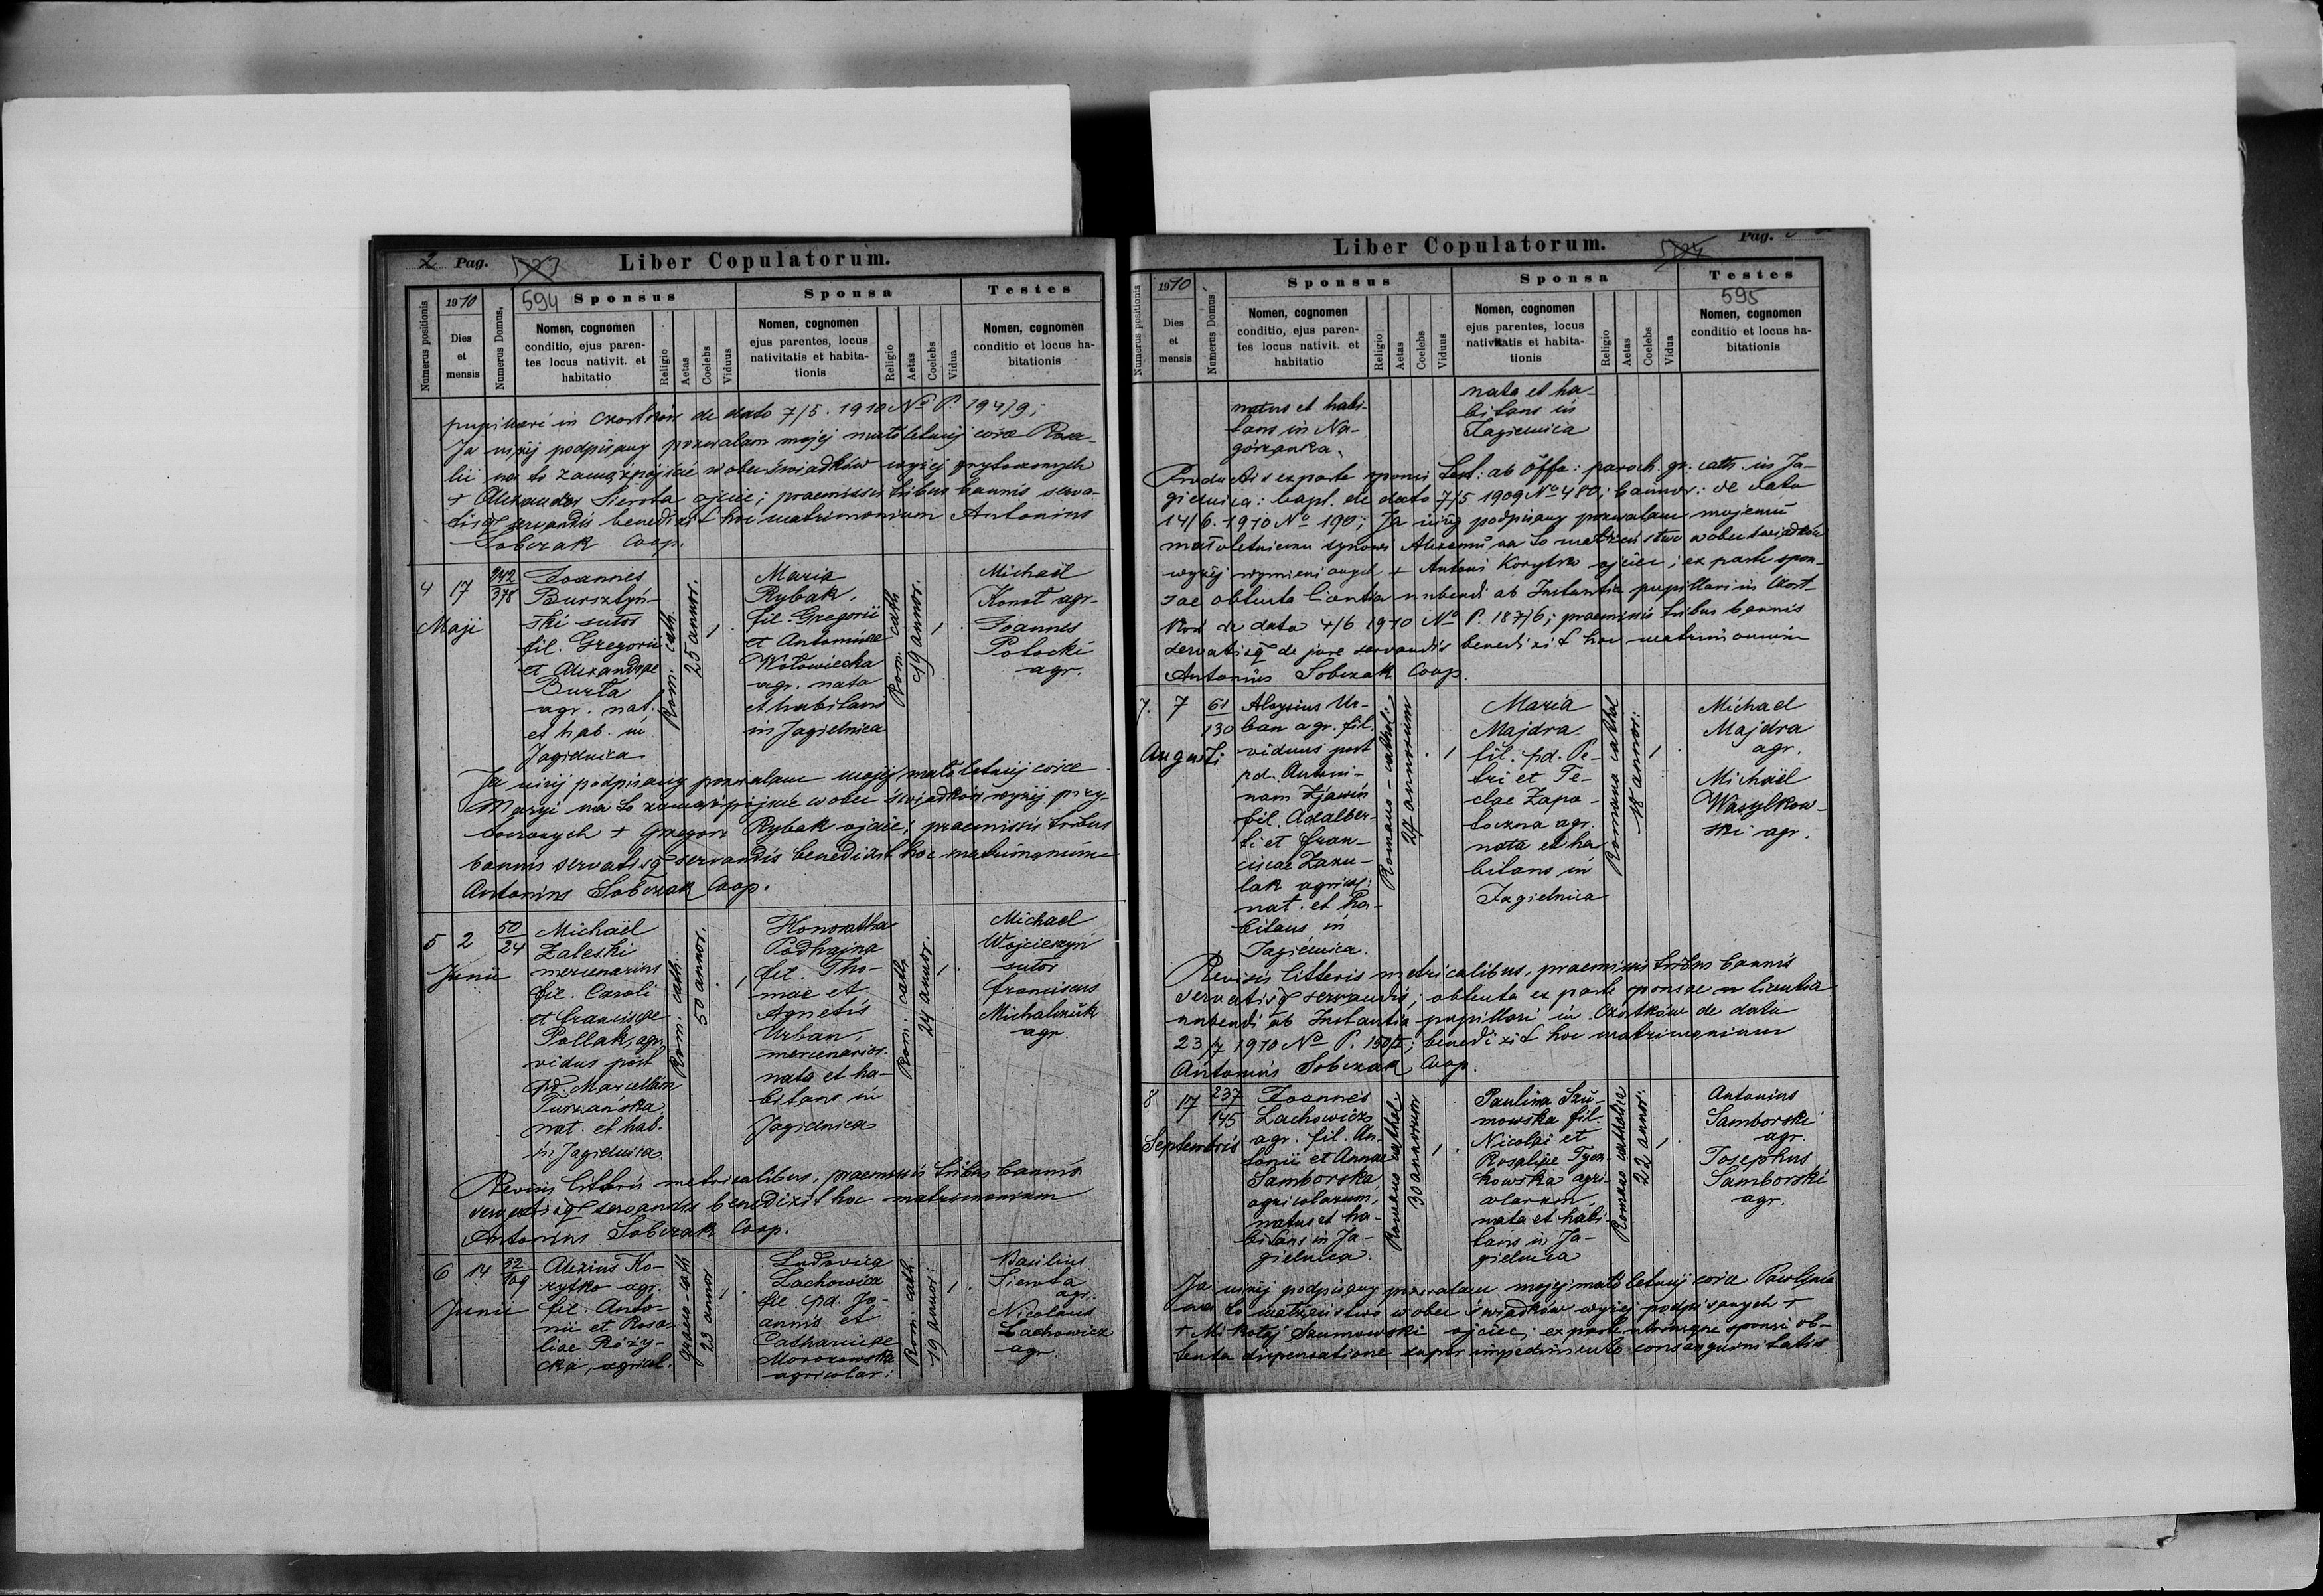 2 Pag. 523 Liber Copulatorum.
Numerus positionis
1910
Dies
et
mensis
Numerus Domus.
594 Sponsus
Nomen, cognomen
conditio, ejus paren-
tes locus nativit. et
habitatio
Religio
Aetas
Coelebs
Viduus
Sponsa
Nomen, cognomen
ejus parentes, locus
nativitatis et habita-
tionis
Religio
Aetas
Coelebs
Vidua
Testes
Nomen, cognomen
conditio et locus ha-
bitationis
pupillari in Czortków de dato 7/5. 1910 No P. 194/9;
Ja niżej podpisany pozwalam mojej małoletniej córce Roza-
lii na to zamążpójście wobec świadków wyżej przytoczonych
+ Alexander Sierota ojciec; praemissis tribus bannis serva-
tisq servandis benedixit hoc matrimonium Antonius
Sobczak Coop.
4
17
Maji
242
378
Joannes
Bursztyń-
ski sutor
fil. Gregorii
et Alexandrae
Burta
agr. nat.
et hab. in
Jagielnica
Rom. cath.
25 annor.
Maria
Rybak,
fil. Gregorii
et Antoninae
Wołowiecka
agr. nata
et habitans
in Jagielnica
Rom. cath
19 annor.
Michaël
Konot agr.
Joannes
Potocki
agr.
Ja niżej podpisany pozwalam mojej małoletniej córce
Maryi na to zamążpójście wobec świadków wyżej przy-
toczonych + Grzegorz Rybak ojciec; praemissis tribus
bannis servatisq servandis benedixit hoc matrimonium
Antonius Sobczak Coop.
5
2
Junii
50
24
Michaël
Zaleski
mercenarius
fil. Caroli
et Franciscae
Pollak, agr.
vidus post
pd. Marcellam
Turzańska
nat. et hab.
in Jagielnica.
Rom. cath.
50 annor.
Honoratha
Podhajna
fil. Tho-
mae et
Agnetis
Urban,
mercenarior.
nata et ha-
bitans in
Jagielnica
Rom. cath
24 annor.
Michael
Wojcieszyn
sutor
Franciscus
Michalczuk
agr.
Revisis litteris metricalibus, praemissis tribus bannis
servatisq servandis benedixit hoc matrimonium
Antonius Sobczak Coop.
6
14
Junii
32
109
Alexius Ko-
rytko agr.
fil. Anto-
nii et Rosa
liae Róży-
cka, agricol.
graeco-cath
23 annor
Ludovica
Lachowicz
fil. pd. Jo-
annis et
Catharinae
Morozowska
agricolar:
Rom. cath.
19 annor:
Basilius
Sierota
agr.
Nicolaus
Lachowicz
agr
Liber Copulatorum. 524 Pag.
Numerus positionis
1910
Dies
et
mensis
Numerus Domus
Sponsus
Nomen, cognomen
conditio, ejus paren-
tes locus nativit. et
habitatio
Religio
Aetas
Coelebs
Viduus
Sponsa
Nomen, cognomen
ejus parentes, locus
nativitatis et habita-
tionis
Religio
Aetas
Coelebs
Vidua
Testes
595
Nomen, cognomen
conditio et locus ha-
bitationis
natus et habi-
tans in Na-
górzanka.
nata et ha-
bitans in
Jagielnica
Productis ex parte sponsi Test: ab Offo: paroch. gr. cath. in Ja-
gielnica: bapt. de dato 7/5 1909 No 480; bannor: de dato
14/6. 1910 No 190; Ja niżej podpisany pozwalam mojemu
małoletniemu synowi Alexemu na to małżeństwo wobec świadków
wyżej wymienionych + Antoni Korytko ojciec; ex parte spon-
sae obtenta licentia nubendi ab Instantia pupillari in Czort-
ków de dato 4/6 1910 No P. 187/6; praemissis tribus bannis
servatisq de jure servandis benedixit hoc matrimonium
Antonius Sobczak Coop.
7.
7
Augusti
61
130
Aloysius Ur-
ban agr. fil.
viduus post
pd. Antoni-
nam Zjawin
fil. Adalber-
ti et Fran-
ciscae Zanu-
lak agricol:
nat. et ha-
bitans in
Jagielnica.
Romano-cathol:
27 annorum
Maria
Majdra
fil. pd. Pe-
tri et Te-
clae Zapo-
toczna agr.
nata et ha
bitans in
Jagielnica
Romana cathol
18 annor:
Michael
Majdra
agr.
Michaël
Wasylkow-
ski agr.
Revisis litteris metricalibus, praemissis tribus bannis
servatisq servandis; obtenta ex parte sponsae licentia
nubendi ab Instantia pupillari in Czortków de dato
23/7 1910 No P. benedixit hoc matrimonium
Antonius Sobczak Coop.
8
17
Septembris
237
145
Joannes
Lachowicz
agr. fil. An-
tonii et Annae
Samborska
agricolarum,
natus et ha-
bitans in Ja-
gielnica.
Romano cathol
30 annorum
Paulina Szu-
mowska fil.
Nicolai et
Rosaliae Tycz-
kowska agri-
colarum,
nata et habi-
tans in Ja-
gielnica
Romano catholica
22 annor.
Antonius
Samborski
agr.
Josephus
Samborski
agr.
Ja niżej podpisany pozwalam mojej małoletniej córce Pawlinie
na to małżeństwo wobec świadków wyżej podpisanych +
+ Mikołaj Szumowski ojciec; ex parte utriusque sponsi ob-
tenta dispensatione super impedimento consanguinitatis